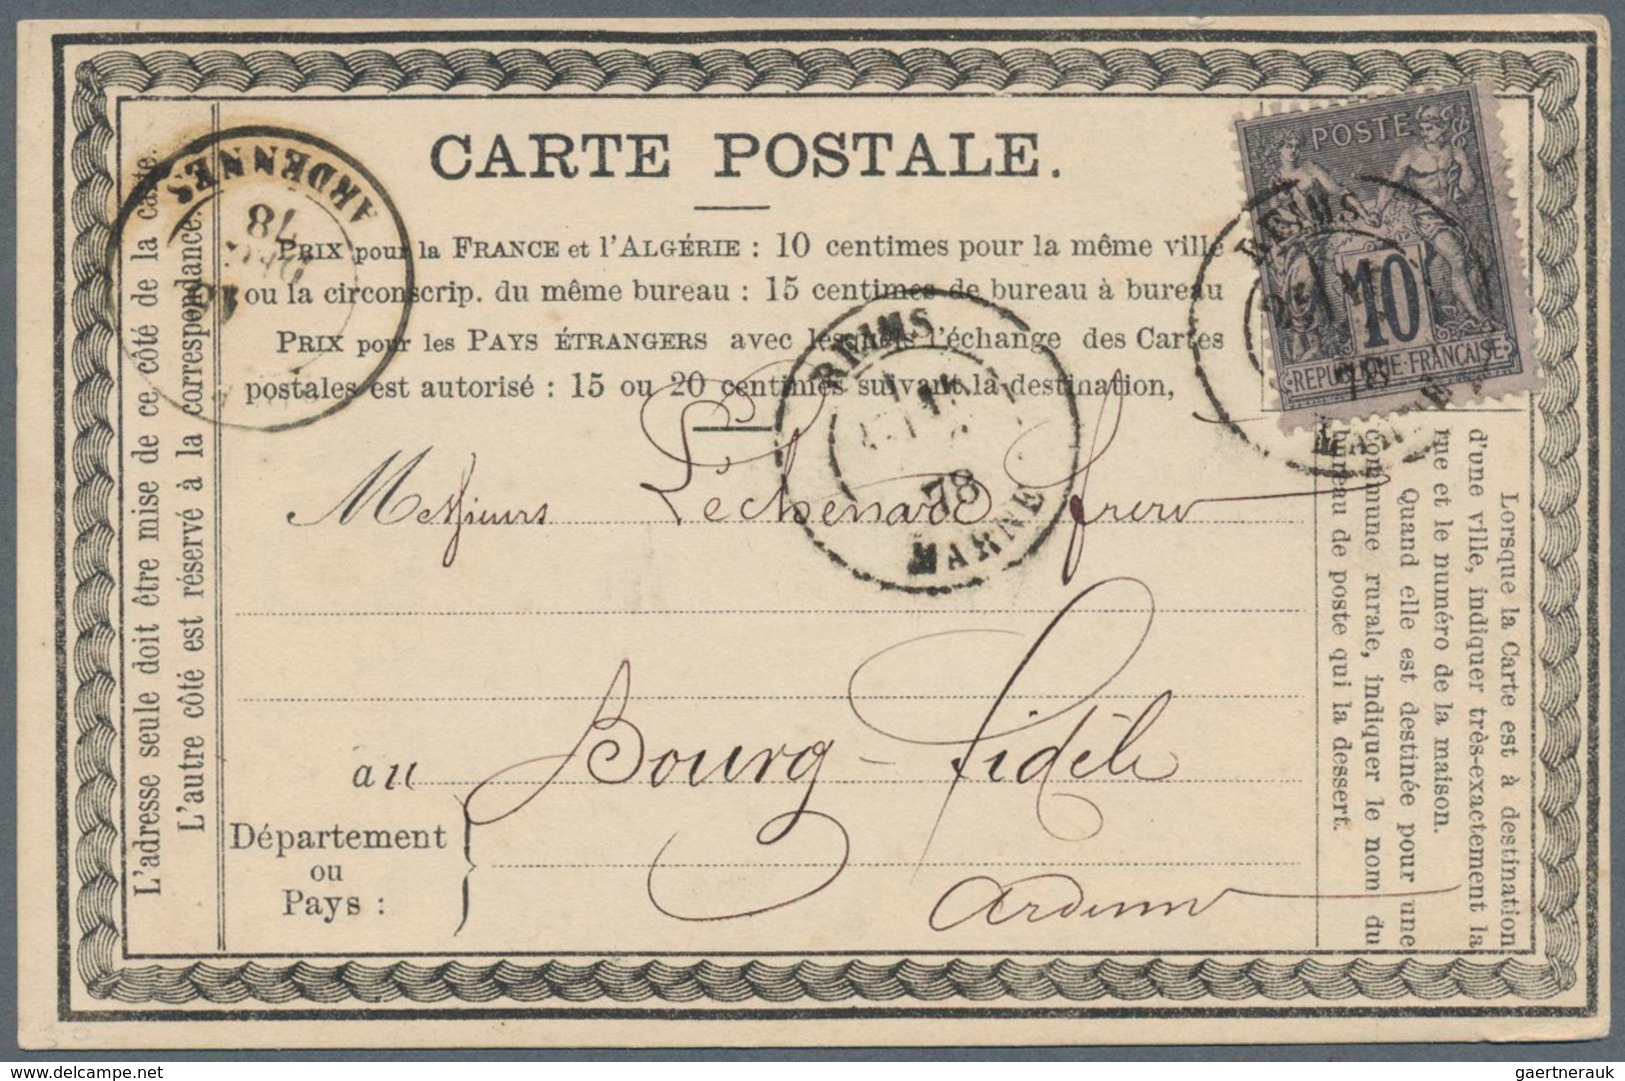 CARTE POSTALE.
PRIX pour la FRANCE et l'ALGÉRIE : 10 centimes pour la même ville
ou la circonscrip. du même bureau : 15 centimes de bureau à bureau
PRIX pour les PAYS ÉTRANGERS avec lesquels l'échange des Cartes
postales est autorisé : 15 ou 20 centimes suivant la destination,
Messieurs Lechenard frères
au Bourg-Fidèle
Département
ou
Pays :
Ardennes
L'adresse seule doit être mise de ce côté de la carte.
L'autre côté est réservé à la correspondance.
Lorsque la Carte est à destination
d'une ville, indiquer très-exactement la
rue et le numéro de la maison.
Quand elle est destinée pour une
commune rurale, indiquer le nom du
bureau de poste qui la dessert.
POSTE
10
REPUBLIQUE FRANÇAISE
REIMS
78
MARNE
REIMS
78
MARNE
ARDENNES
78
gaertnerauk